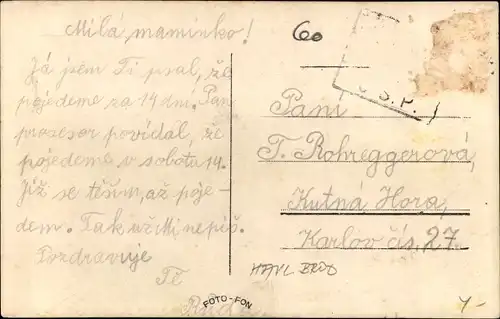 Milá maminko!
Já jsem Ti psal, že
pojedeme za 14 dní. Pan
profesor povídal, že
pojedeme v sobotu 14.
Již se těším, až poje-
dem. Tak už Mi nepiš.
Pozdravuje
Tě
60
S.P.
Paní
T. Rohreggerová,
Kutná Hora,
Karlov čís. 27.
HAVL BROD
FOTO-FON
4-